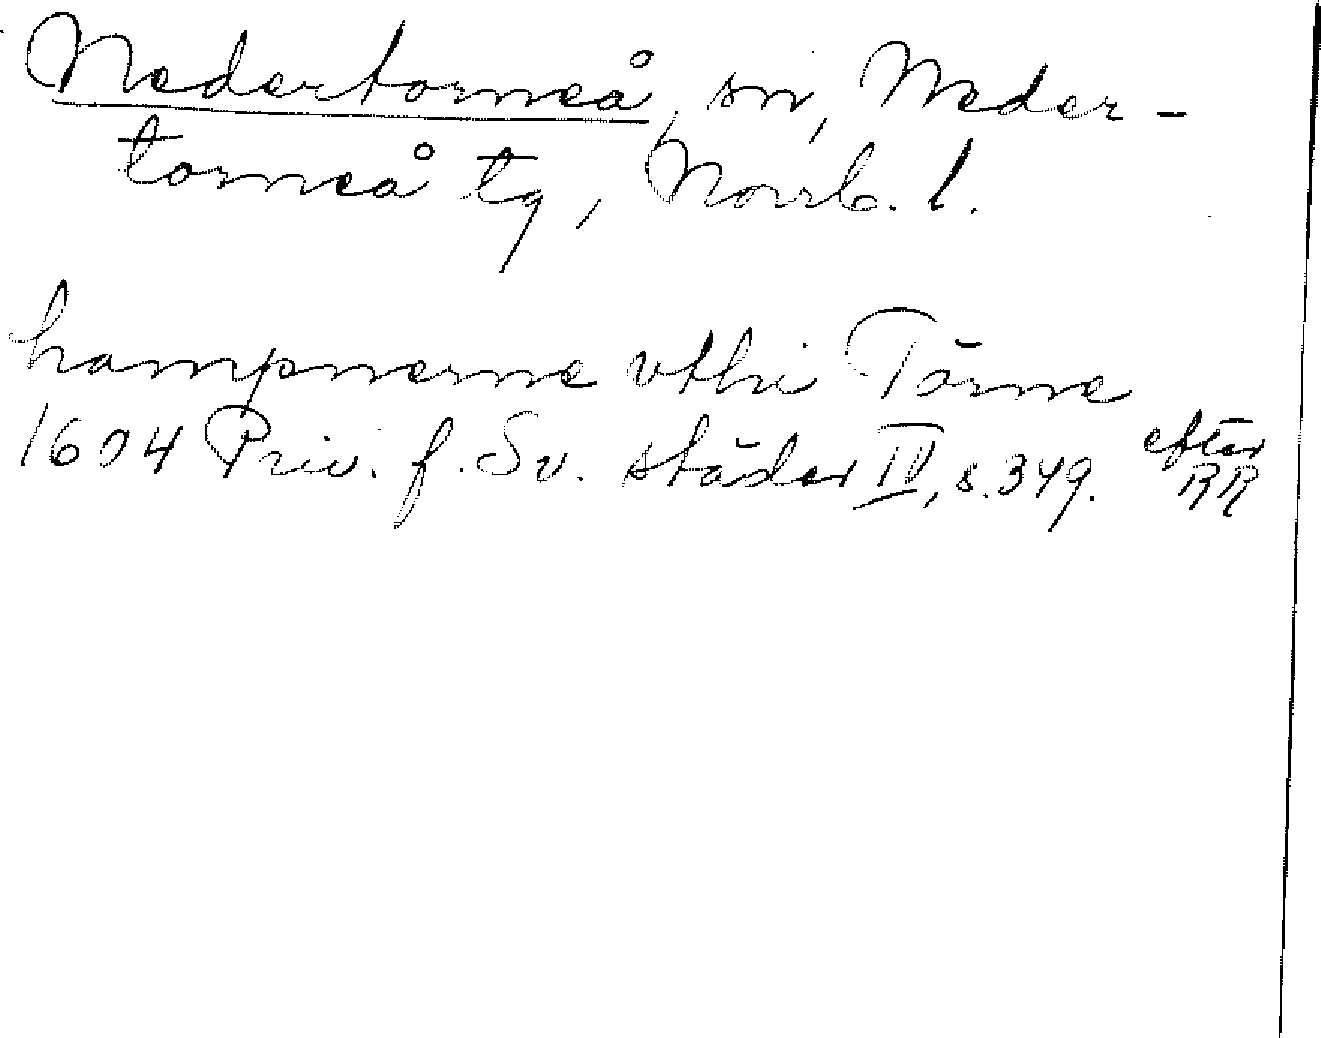 Nedertorneå, sn, Neder-
torneå tg, Norrb. l.
hampnerne vthi Tårne
1604 Priv. f. Sv. städer II, s. 349. efter
RR